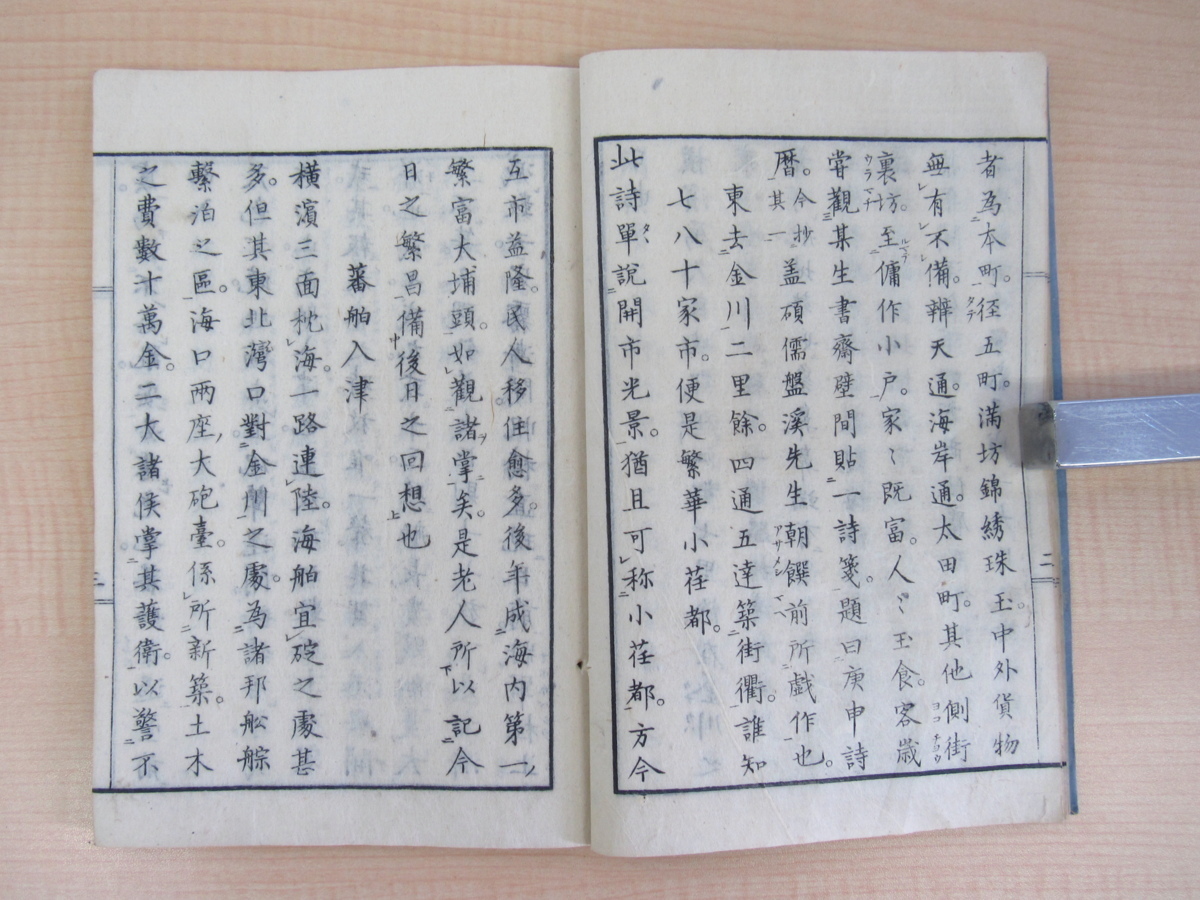 者為本町。径五町。満坊錦綉珠玉。中外貨物
無有不備。辨天通。海岸通。太田町。其他側街
裏坊。至傭作小户。家〻既富。人〻玉食。客歳
甞觀某生書齋壁間貼一詩箋。題曰庚申詩
暦。今抄其一盖碩儒盤溪先生朝饌前所戯作也。
東去金川二里餘。四通五達築街衢。誰知
七八十家市。便是繁華小荏都。
此詩單説開市光景。猶且可称小荏都。方今
互市益隆。民人移住愈多。後年成海内第一
繁富大埔頭。如觀諸掌矣。是老人所以記今
日之繁昌備後日之回想也
蕃舶入津
横濱三面枕海。一路連陸。海舶宜碇之處甚
多。但其東北灣口對金川之處。為諸邦舩艅
繫泊之區。海口兩座大砲臺。係所新築。土木
之費數十萬金。二大諸侯掌其護衛。以警不
二
三